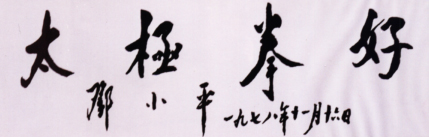 太極拳好
鄧小平
一九七八年十一月十六日